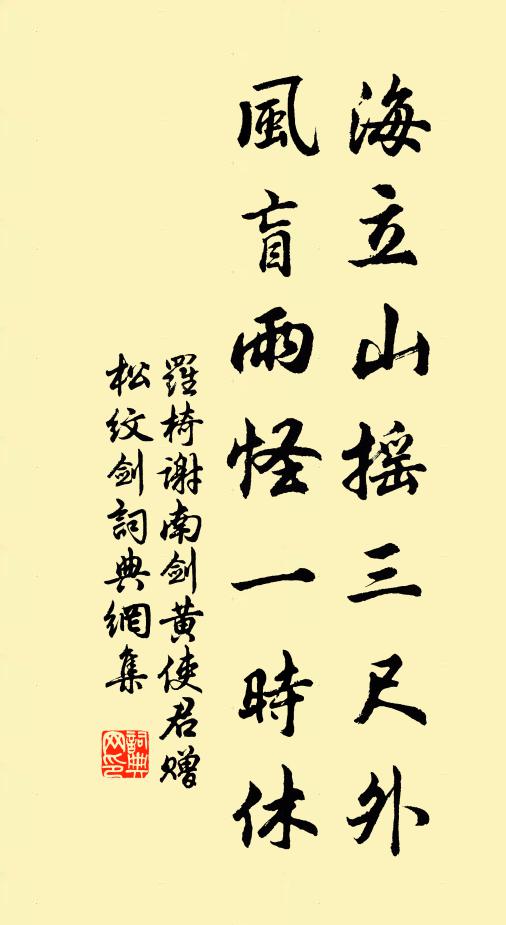 海立山摇三尺外
風盲雨怪一時休
羅椅谢南剑黄使君赠
松纹剑詞典網集
詞典网印